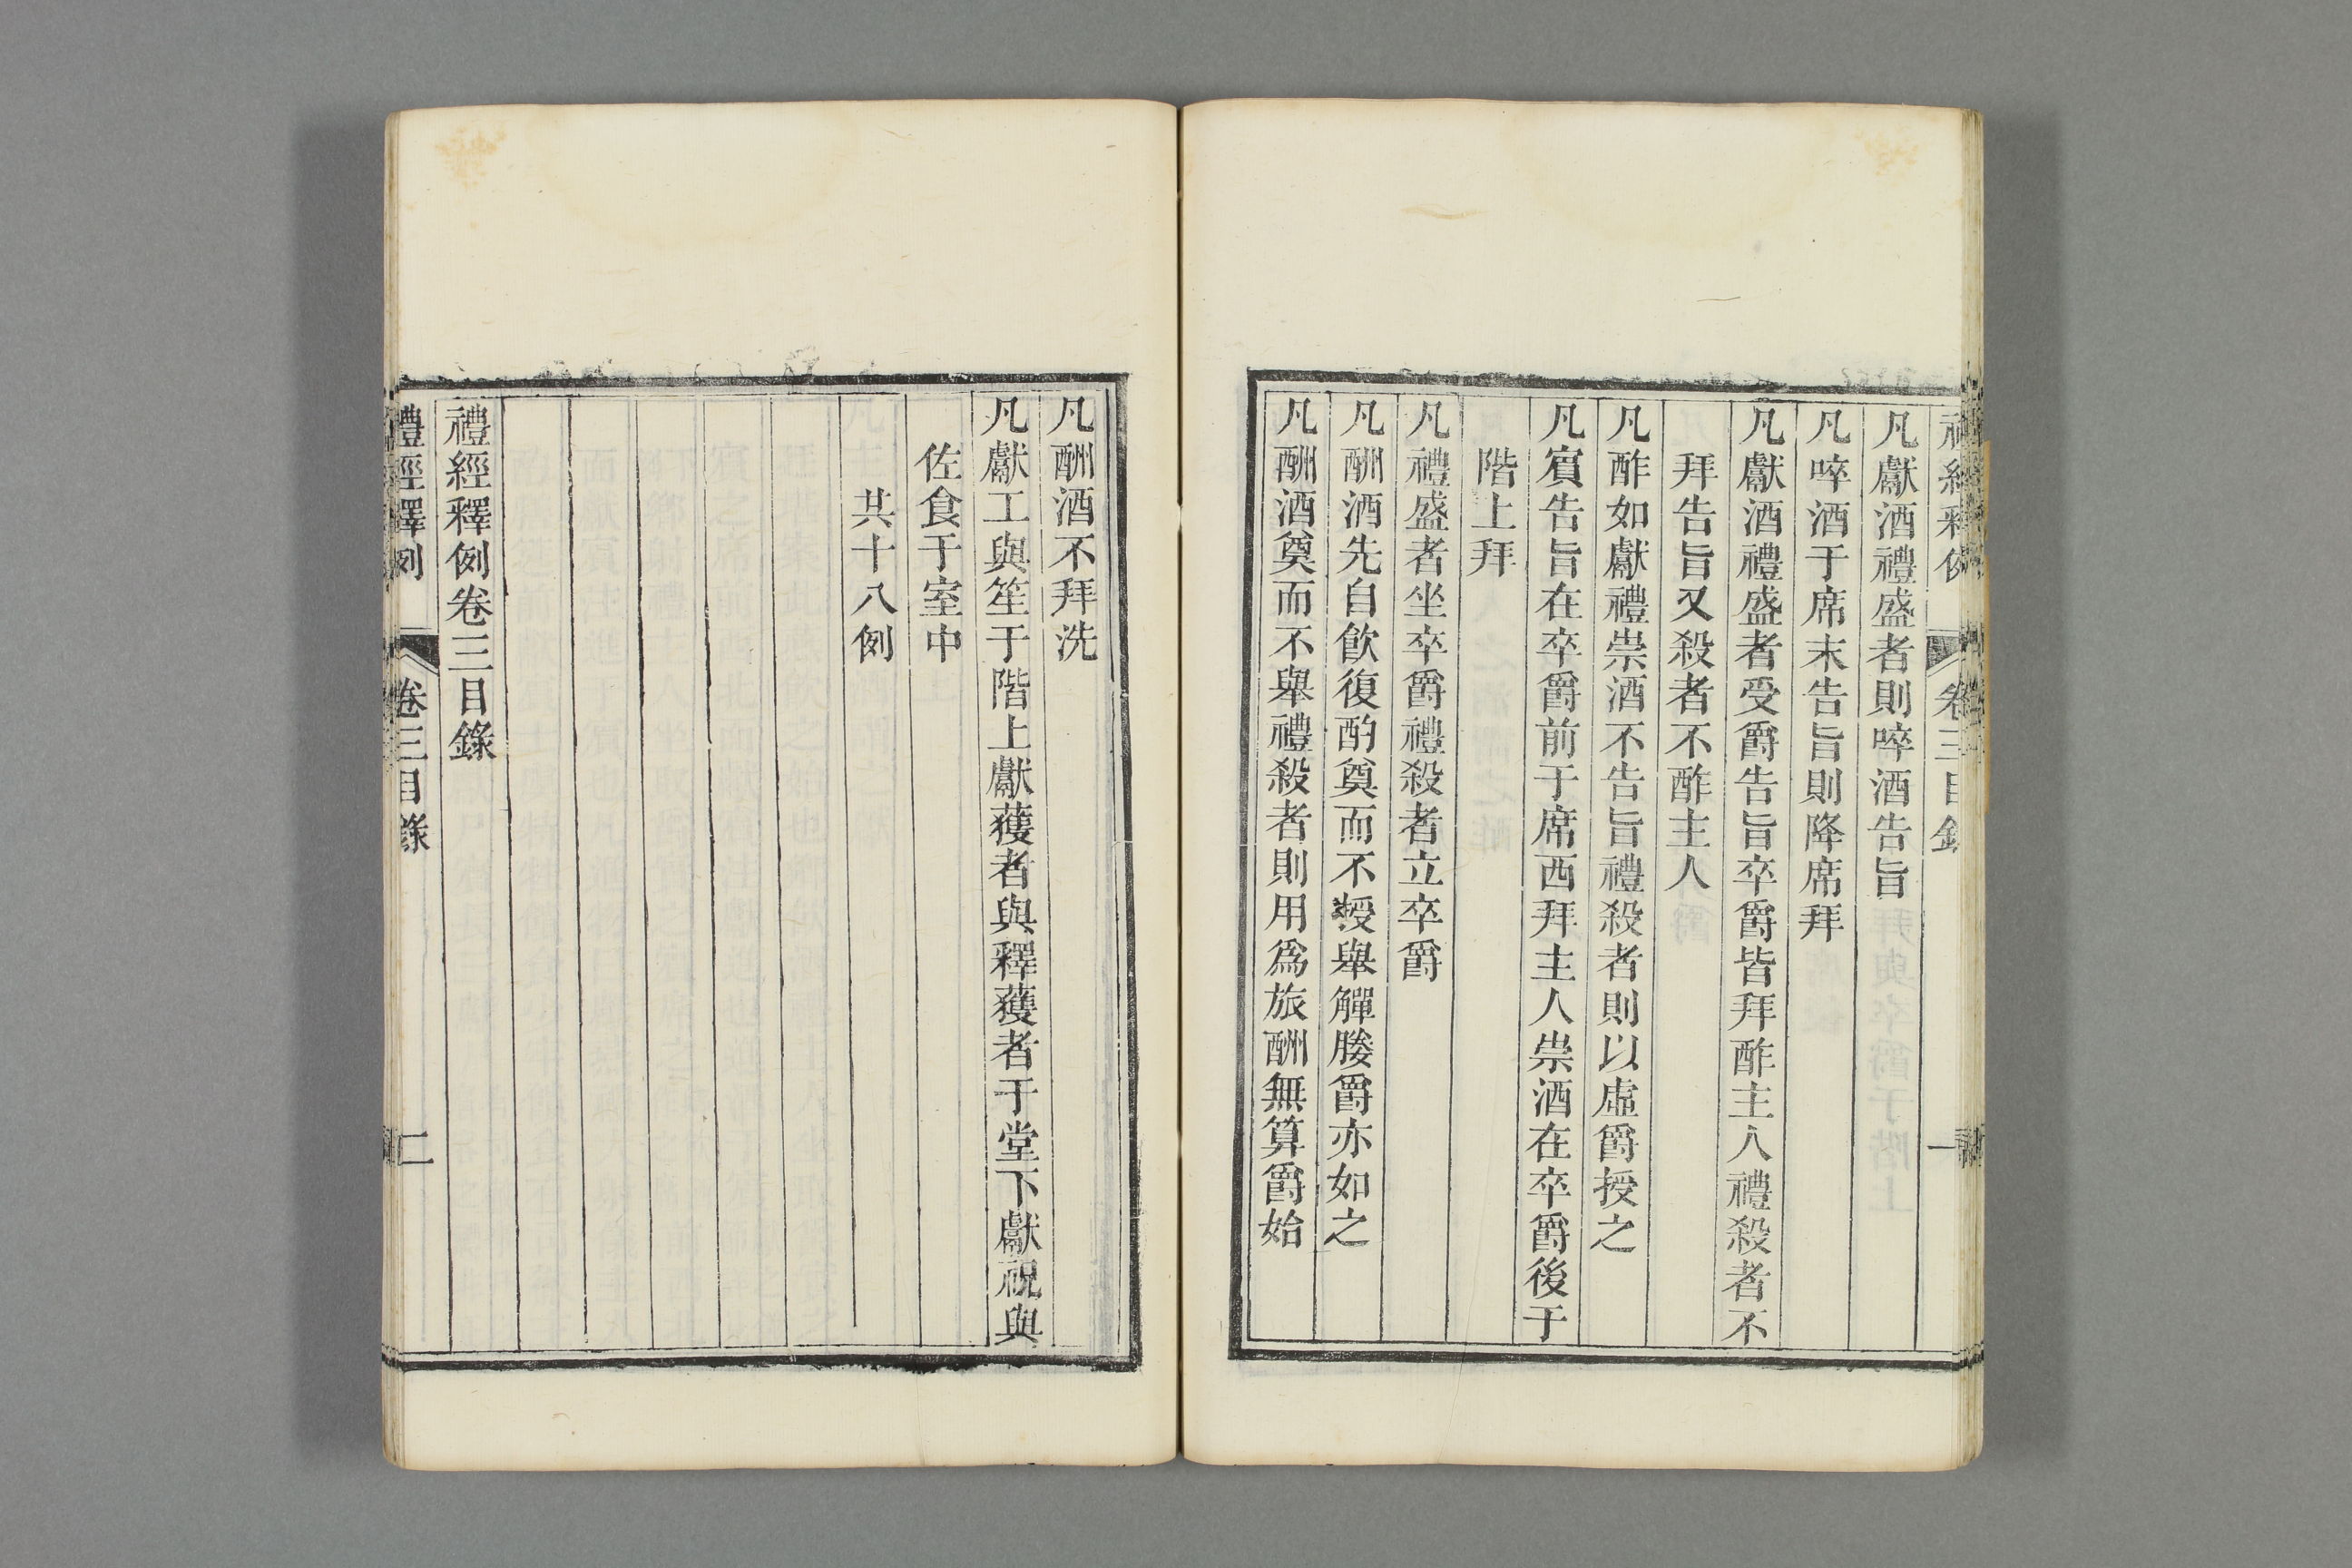 禮經釋例 卷三目錄 一
凡獻酒禮盛者則啐酒告旨
凡啐酒于席末告旨則降席拜
凡獻酒禮盛者受爵告旨卒爵皆拜酢主人禮殺者不
拜告旨又殺者不酢主人
凡酢如獻禮崇酒不告旨禮殺者則以虛爵授之
凡賓告旨在卒爵前于席西拜主人崇酒在卒爵後于
階上拜
凡禮盛者坐卒爵禮殺者立卒爵
凡酬酒先自飲復酌奠而不授舉觶媵爵亦如之
凡酬酒奠而不舉禮殺者則用爲旅酬無算爵始
凡酬酒不拜洗
凡獻工與笙于階上獻獲者與釋獲者于堂下獻祝與
佐食于室中
共十八例
禮經釋例卷三目錄
禮經釋例 卷三目錄 二